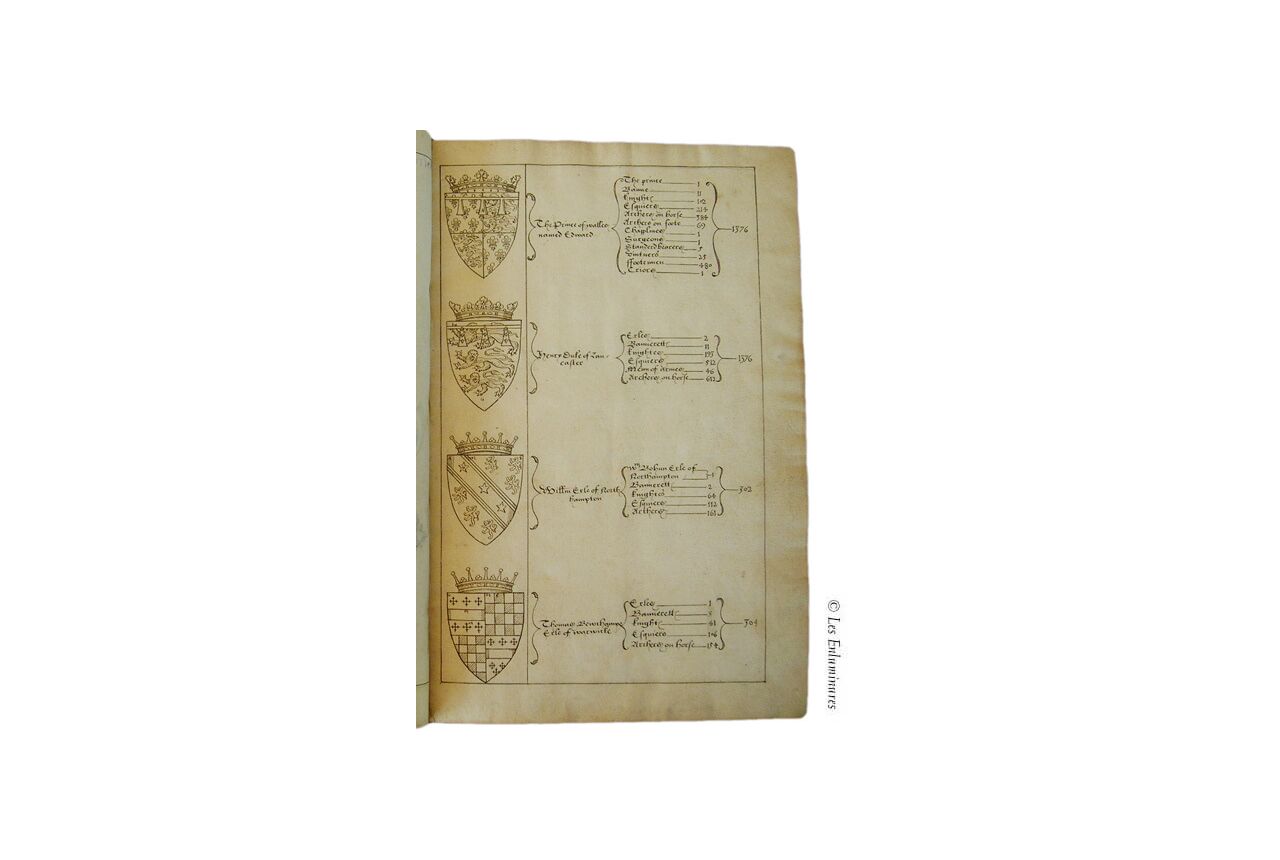 The Prince of walles
named Edward
The prince 1
Bann 11
knight 102
Esquiers 214
Archers on horse 384
Archers on foote 69
Chaplines 1
Surgeons 1
Standerdbearers 5
vintners 25
ffootemen 480
Criors 1
1376
Henry Duke of Lan-
caster
Erles 2
Bannerett 11
knightes 195
Esquiers 512
Menn of Armes 46
Archers on horse 612
1376
Willm Erle of North
hampton
Wm Bohun Erle of
Northampton 1
Banerett 2
knightes 64
Esquiers 112
Archers 161
302
Thomas
Erle of warwicke
Erles 1
Bannerett
knight 61
Esquiers 106
Archers on horse 154
304
© Les Enluminures